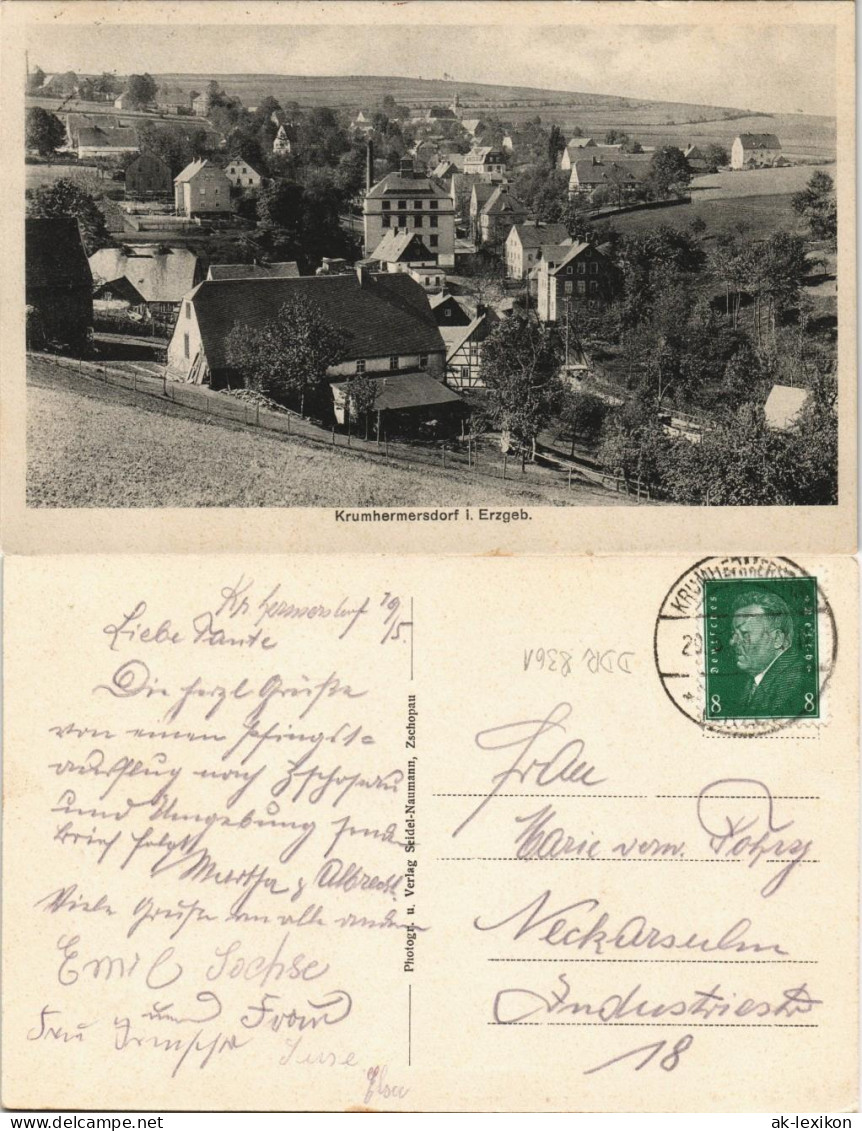 Krumhermersdorf i. Erzgeb.
Kr hermersdorf 29/5.
Liebe Tante
Die herzl Grüße
von einem Pfingst=
ausflug nach Zschopau
und Umgebung senden
Brief folgt
Martha u Albrecht
Viele Grüße an alle andern
Emil Sochse
und Frau
Frau
Suse
Elsa
Photogr. u. Verlag Seidel-Naumann, Zschopau
DDR 8361
KRUMHERMERSDORF
Deutsches Reich
8 8
Frau
Marie verw.
Neckarsulm
Industriestr
18
ak-lexikon